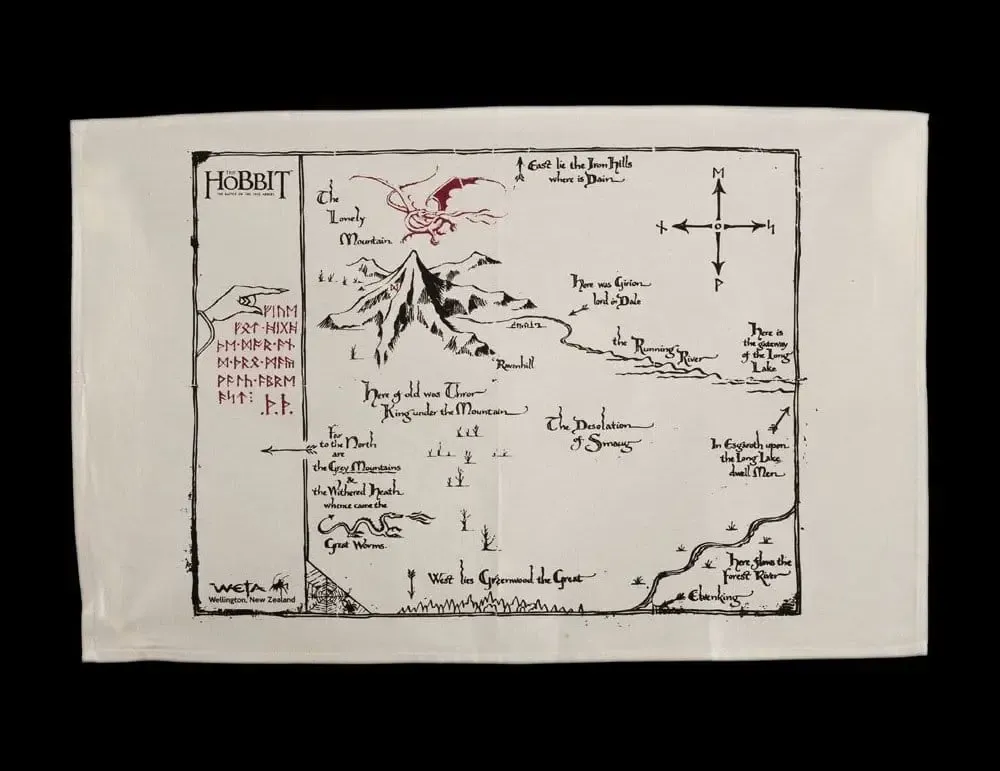 THE
HOBBIT
THE BATTLE OF THE FIVE ARMIES
ᚠᛁᚢᛖ
ᚠᚩᛏ·ᚻᛁᚷᚻ
ᚦᛖ·ᛞᚩᚱ·ᚪᚾ
ᛞ·ᚦᚱᛟ·ᛗᚪᚣ
ᚹᚪᛚᚳ·ᚪᛒᚱᛖ
ᚪᛋᛏ᛬
.ᚦ.ᚦ.
WETA
Wellington, New Zealand
The
Lonely
Mountain
East lie the Iron Hills
where is Dain
ᛖ
ᚾ
ᛋ
ᚹ
Here was Girion
lord in Dale
the Running River
Here is
the gateway
of the Long
Lake
Ravenhill
Here of old was Thror
King under the Mountain
The Desolation
of Smaug
In Esgaroth upon
the Long Lake
dwell Men
Far
to the North
are
the Grey Mountains
&
the Withered Heath
whence came the
Great Worms.
West lies Greenwood the Great
Here flows the
Forest River
Elvenking